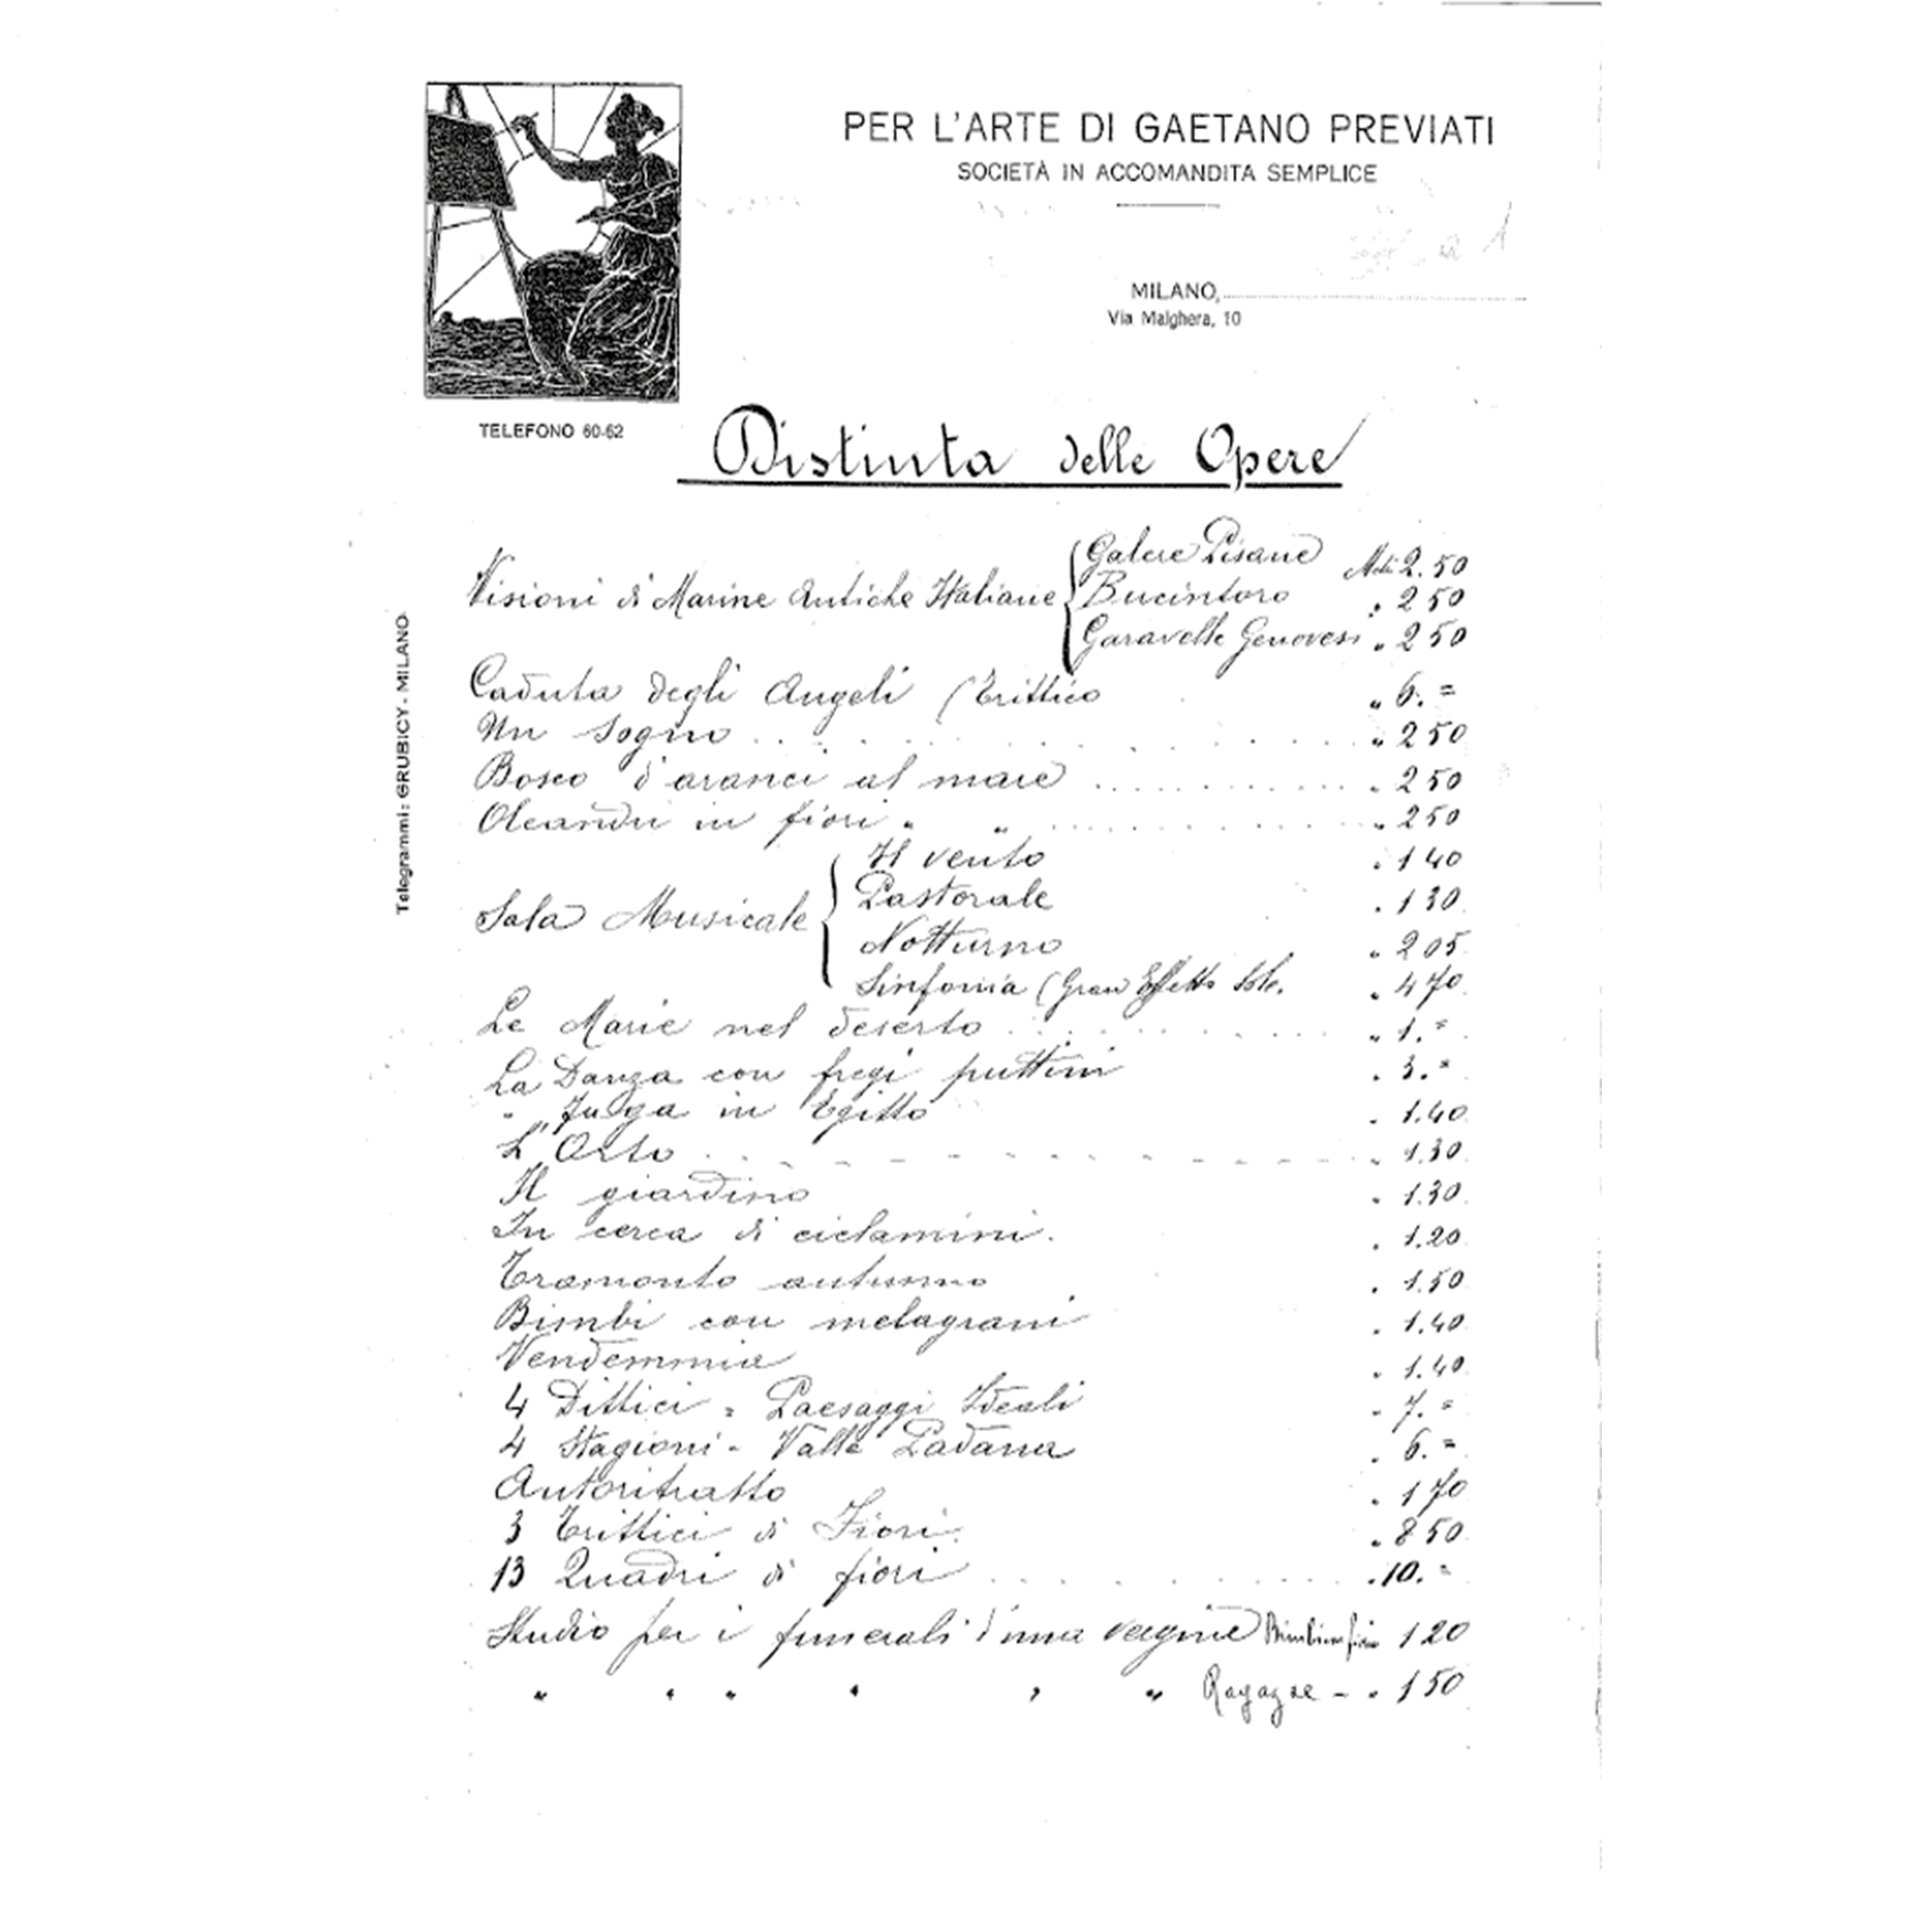 PER L'ARTE DI GAETANO PREVIATI
SOCIETÀ IN ACCOMANDITA SEMPLICE
MILANO,
Via Malghera, 10
TELEFONO 60-62
Telegrammi: GRUBICY - MILANO
Distinta delle Opere
Galere Pisane Metri 2.50
Visioni di Marine Antiche Italiane Bucintoro " 2 50
Garavelle Genovesi " 2 50
Caduta degli Angeli (Trittico " 6. =
Un Sogno " 2 50
Bosco d'aranci al mare " 2 50
Oleandri in fiori " " " 2 50
Il vento " 1 40
Sala Musicale Pastorale " 1 30
Notturno " 2 05
Sinfonia (Gran Effetto Sole. " 4 70
Le Marie nel deserto " 1. =
La Danza con fregi puttini " 3. =
" Fuga in Egitto " 1.40
L'Orto " 1.30
Il giardino " 1.30
In cerca di ciclamini. " 1.20
Tramonto autunno " 1.50
Bimbi con melagrani " 1.40
Vendemmia " 1.40
4 Dittici = Paesaggi Ideali " 7. =
4 Stagioni - Valle Padana " 6. =
Autoritratto " 1 70
3 Trittici di Fiori. " 8 50
13 Quadri di fiori " 10. =
Studio per i funerali d'una vergine 1 20
" " " " " " Ragazze - " 1 50